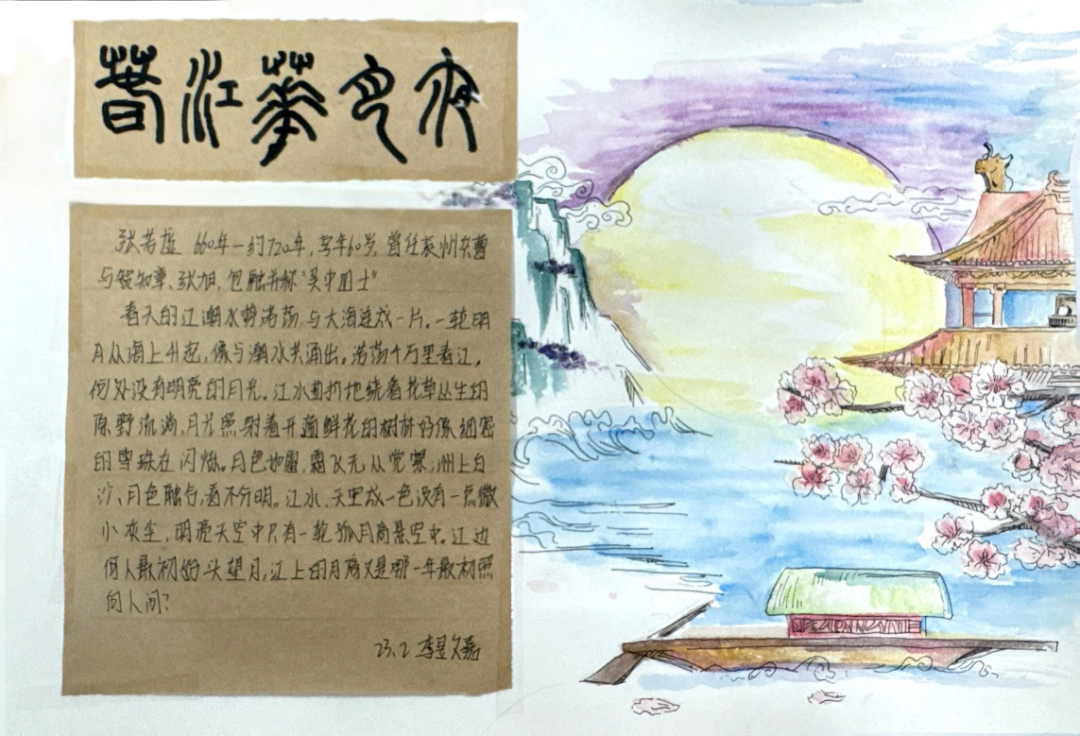 春江花月夜
张若虚 660年—约720年,享年60岁,曾任兖州兵曹
与贺知章、张旭、包融并称“吴中四士”
春天的江潮水势浩荡,与大海连成一片。一轮明
月从海上升起,像与潮水共涌出。浩荡千万里春江,
何处没有明亮的月光。江水曲折地绕着花草丛生的
原野流淌,月光照射着开遍鲜花的树林好像细密
的雪珠在闪烁。月色如霜,霜飞无从觉察;洲上白
沙、月色融合,看不分明。江水、天空成一色没有一点微
小灰尘,明亮天空中只有一轮孤月高悬空中。江边
何人最初 头望月,江上的月亮又是哪一年最初照
向人间?
23.2 李昱